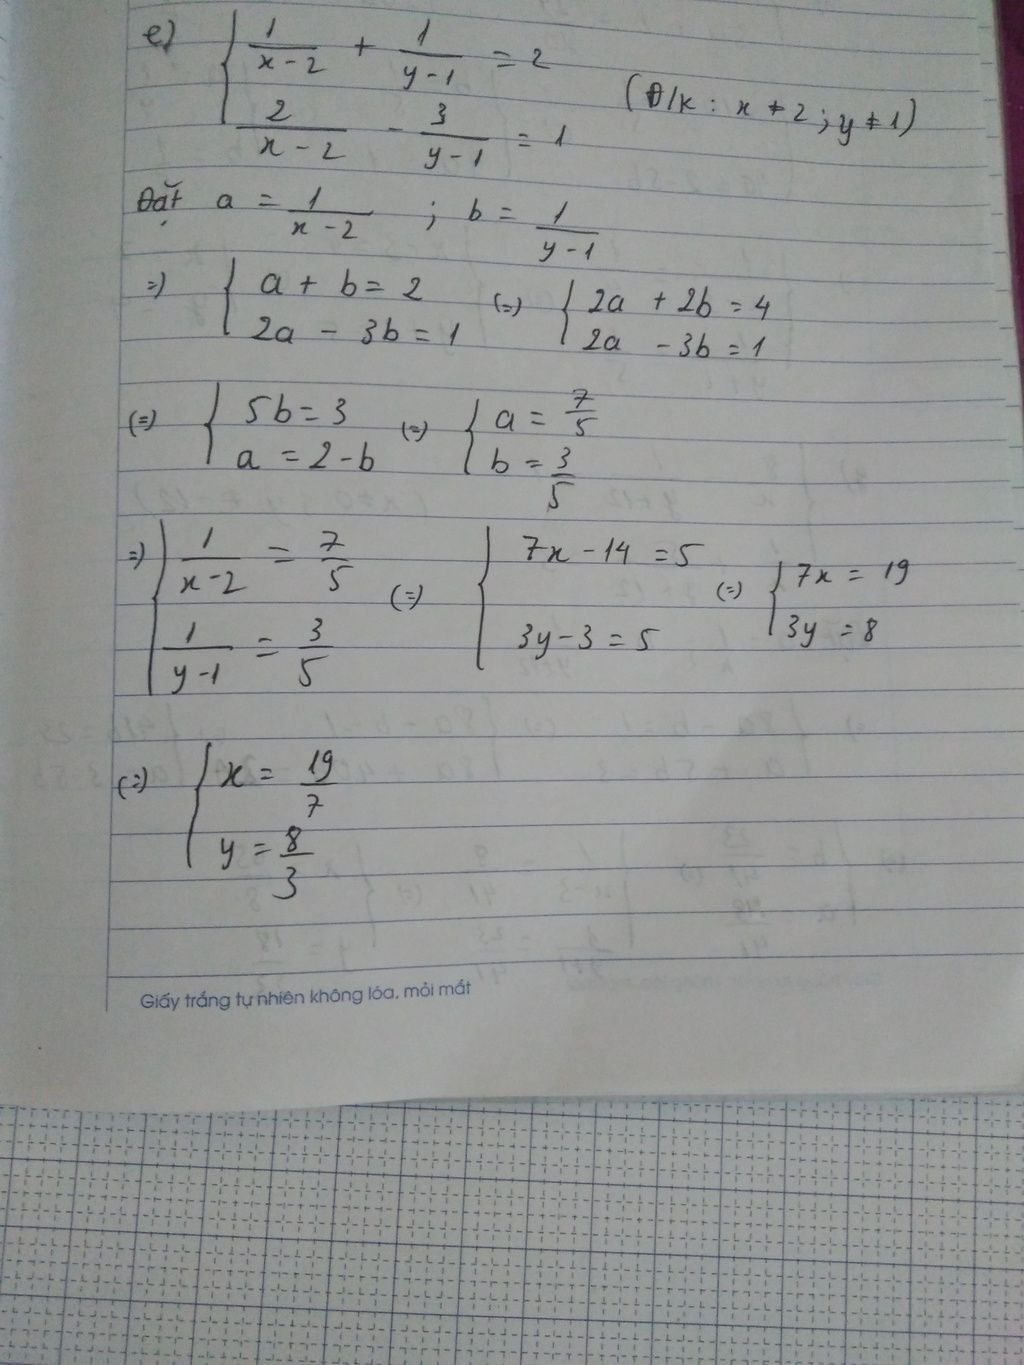 e) { 1/(x-2) + 1/(y-1) = 2
2/(x-2) - 3/(y-1) = 1 (Đ/k: x ≠ 2; y ≠ 1)
Đặt a = 1/(x-2) ; b = 1/(y-1)
=) { a + b = 2 (=) { 2a + 2b = 4
2a - 3b = 1 2a - 3b = 1
(=) { 5b = 3 (=) { a = 7/5
a = 2-b b = 3/5
=) { 1/(x-2) = 7/5 (=) { 7x - 14 = 5 (=) { 7x = 19
1/(y-1) = 3/5 3y - 3 = 5 3y = 8
(=) { x = 19/7
y = 8/3
Giấy trắng tự nhiên không lóa, mỏi mắt